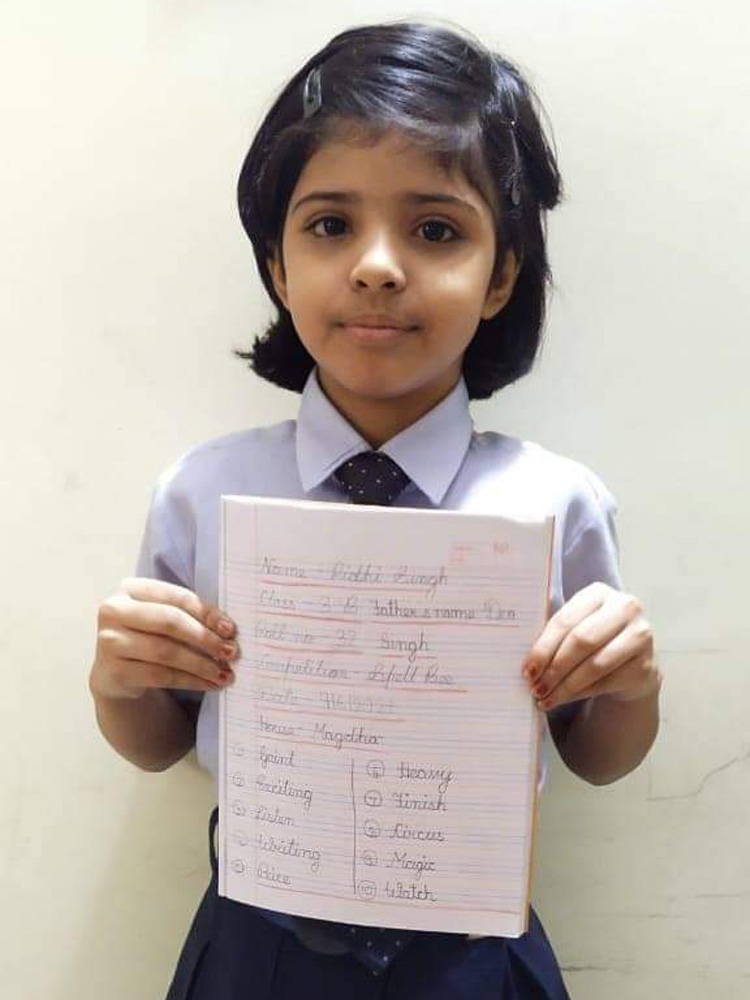 Name - Ridhi Singh
Class - 3-B Father's name Dev
Roll no - 32 Singh
Competition - Spell Bee
House - Magdha
① Gaint
② Exciting
③ Listen
④ Writing
⑤ Price
⑥ Heavy
⑦ Finish
⑧ Circus
⑨ Magic
⑩ Watch